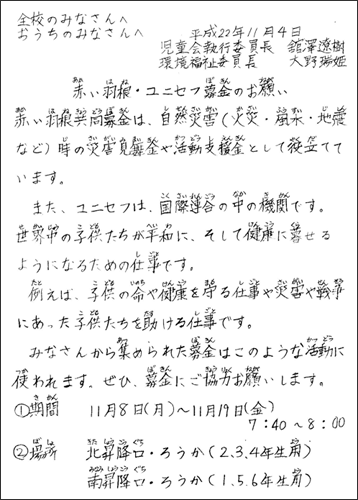 全校のみなさんへ
おうちのみなさんへ
平成22年11月4日
児童会執行委員長 舘澤遼樹
環境福祉委員長 大野瑞姫
赤い羽根・ユニセフ募金のお願い
赤い羽根共同募金は、自然災害(火災・風水・地震
など)時の災害見舞金や活動支援金として役立てて
います。
また、ユニセフは、国際連合の中の機関です。
世界中の子供たちが平和に、そして健康に暮せる
ようになるための仕事です。
例えば、子供の命や健康を守る仕事や災害や戦争
にあった子供たちを助ける仕事です。
みなさんから集められた募金はこのような活動に
使われます。ぜひ、募金にご協力お願いします。
①期間 11月8日(月)〜11月19日(金)
7:40〜8:00
②場所 北昇降口・ろうか(2.3.4年生用)
南昇降口・ろうか(1.5.6年生用)